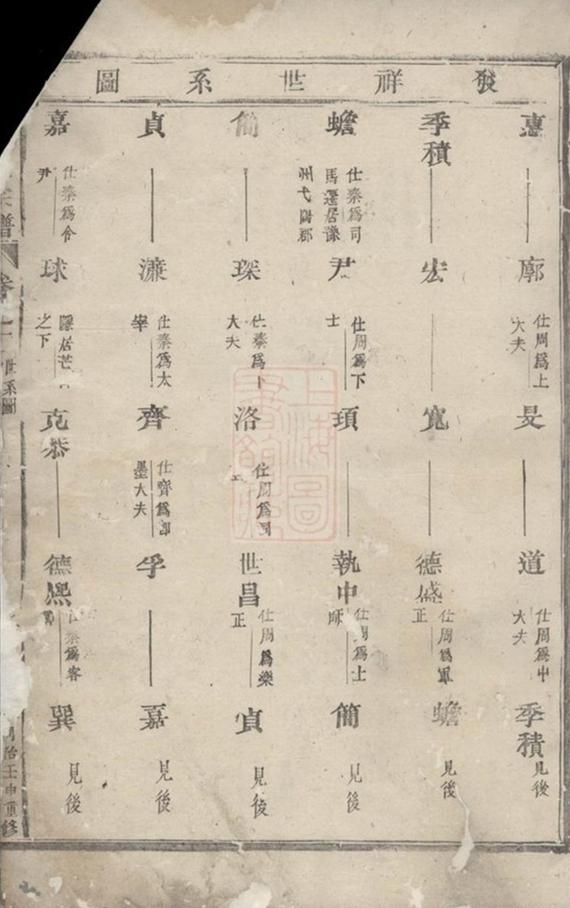 發祥世系圖
憲
廓
仕周爲上
大夫
旻
道
仕周爲中
大夫
季積
見後
季積
宏
寬
德盛
仕周爲軍
正
蟾
見後
蟾
仕秦爲司
馬遷居濠
州弋陽郡
尹
仕周爲下
士
頊
執中
仕周爲士
師
簡
見後
簡
琛
仕秦爲
大夫
洛
仕周爲
世昌
仕周爲樂
正
貞
見後
貞
濂
仕秦爲太
宰
齊
仕齊爲卽
墨大夫
孚
嘉
見後
嘉
仕秦爲令
尹
球
隱居芒
之下
克恭
德熙
仕秦爲客
巽
見後
譜
卷一
世系圖
同治壬申重修
上海圖書館藏